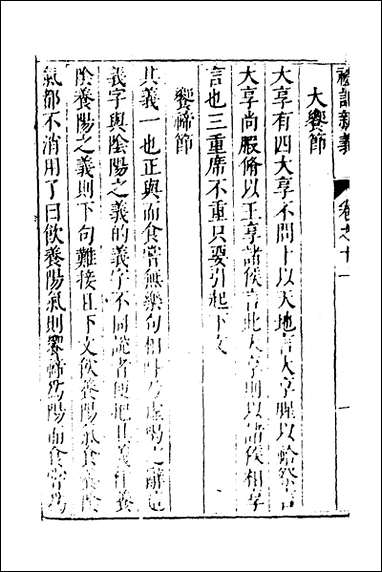 禮記新義　卷之十一　一
大饗節
大享有四大享不問卜以天地言大享腥以祫祭言
大享尚腶脩以王享諸侯言此大享則以諸侯相享
言也三重席不重只要引起下文
饗禘節
其義一也正與而食嘗無樂句相呼為虛喝之辭這
義字與陰陽之義的義字不同說者便把其義作養
陰養陽之義則下句難接且下文飲養陽氣食養陰
氣都不消用了曰飲養陽氣則饗禘為陽而食嘗為